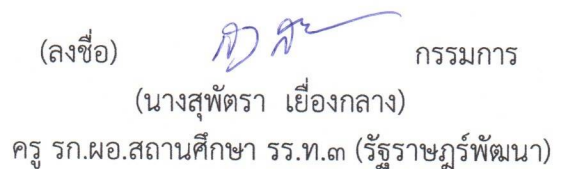 (ลงชื่อ) กรรมการ
(นางสุพัตรา เยื่องกลาง)
ครู รก.ผอ.สถานศึกษา รร.ท.๓ (รัฐราษฎร์พัฒนา)